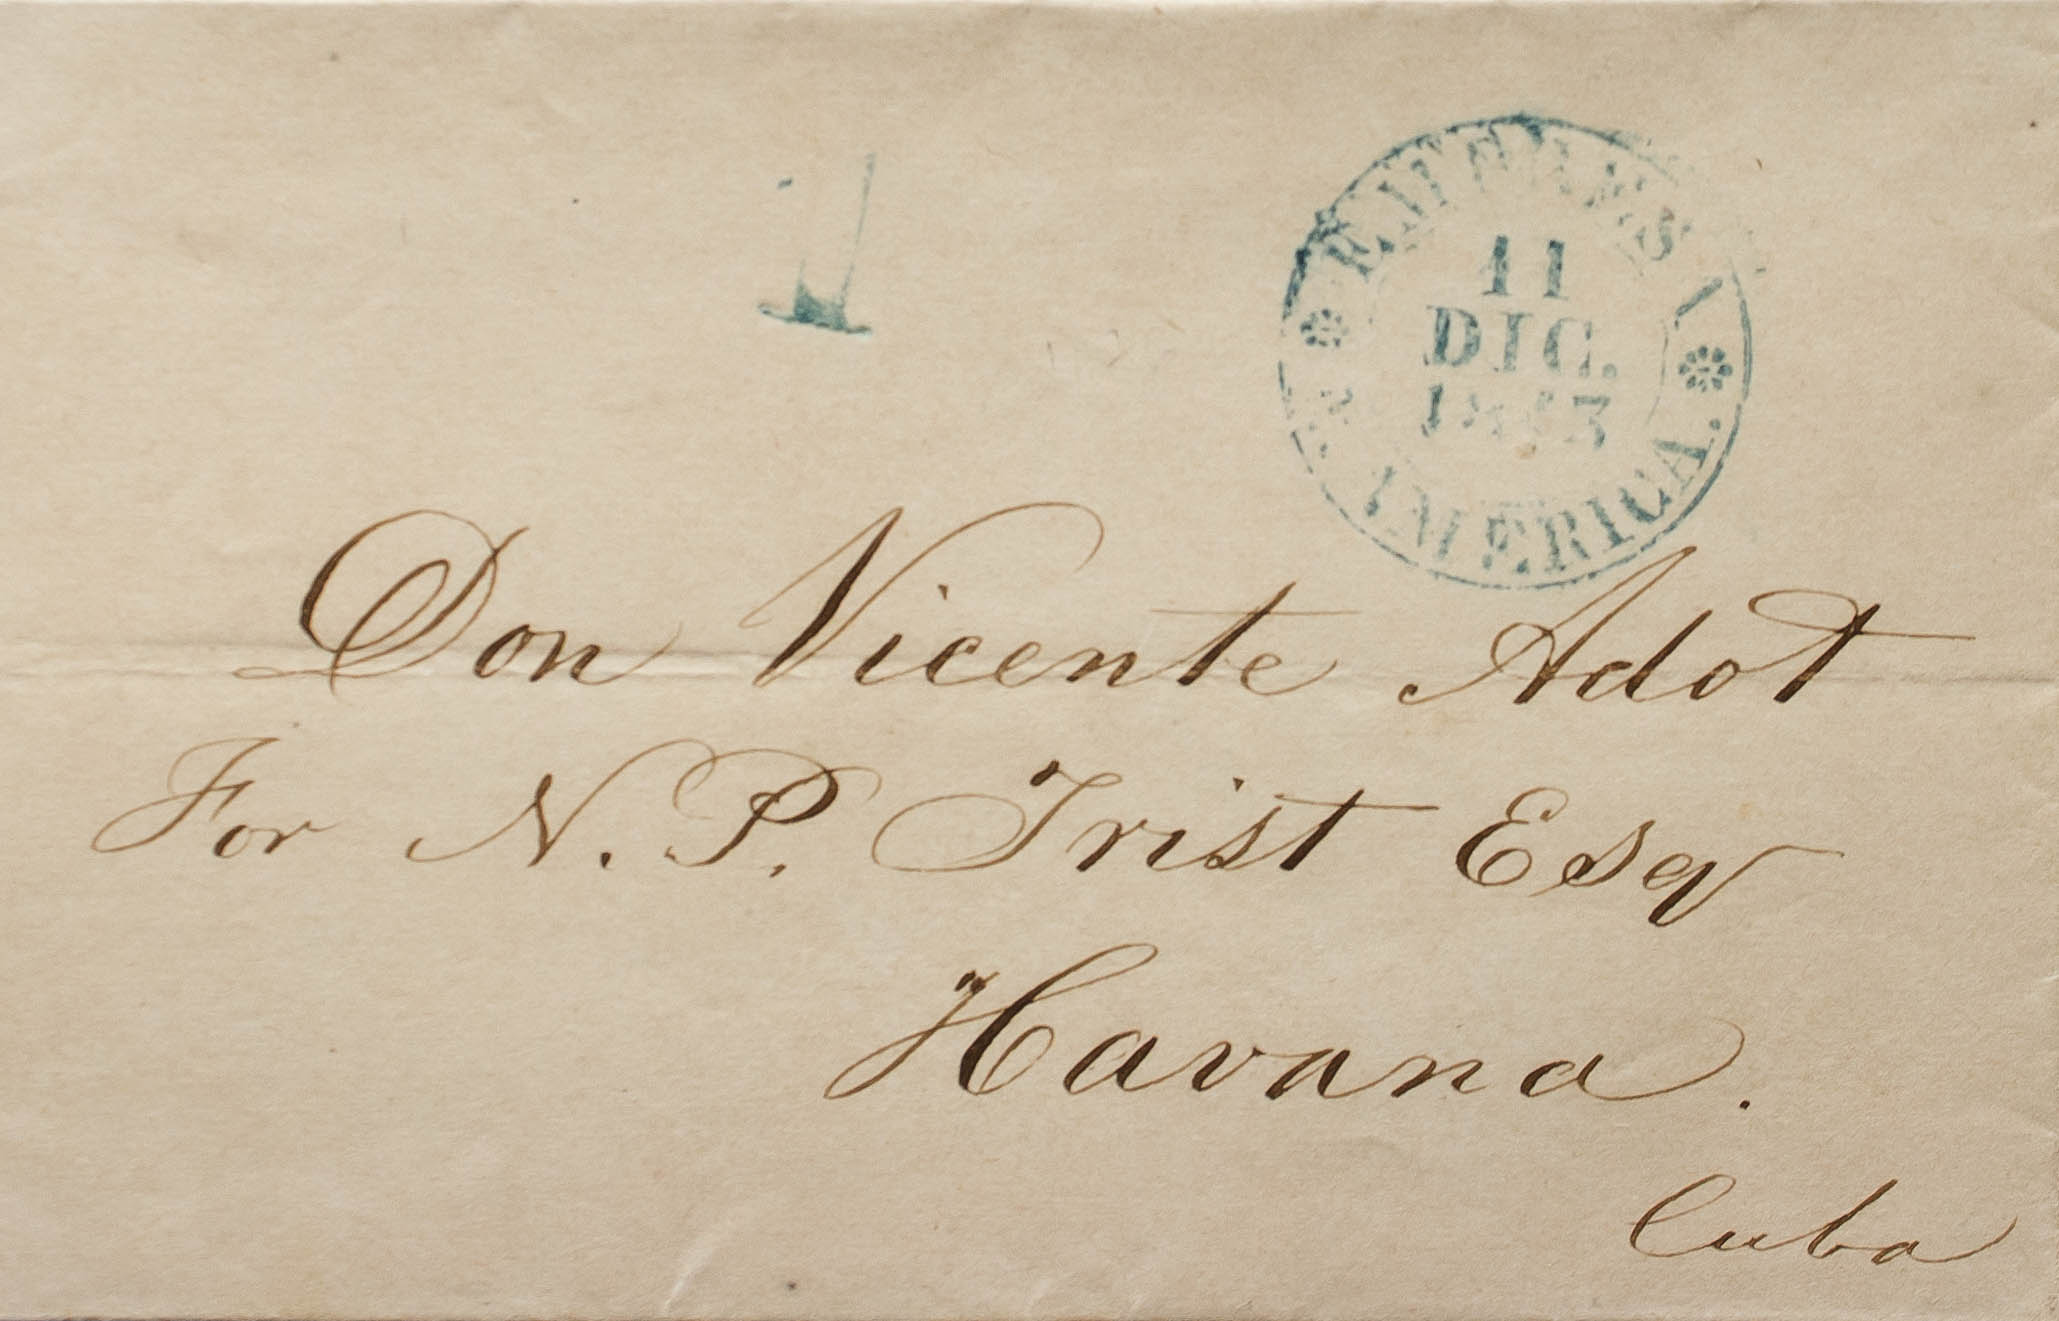 1
EMPRESA
11
DIC.
1843
N. AMERICA.
Don Vicente Adot
For N. P. Trist Esq
Havana.
Cuba